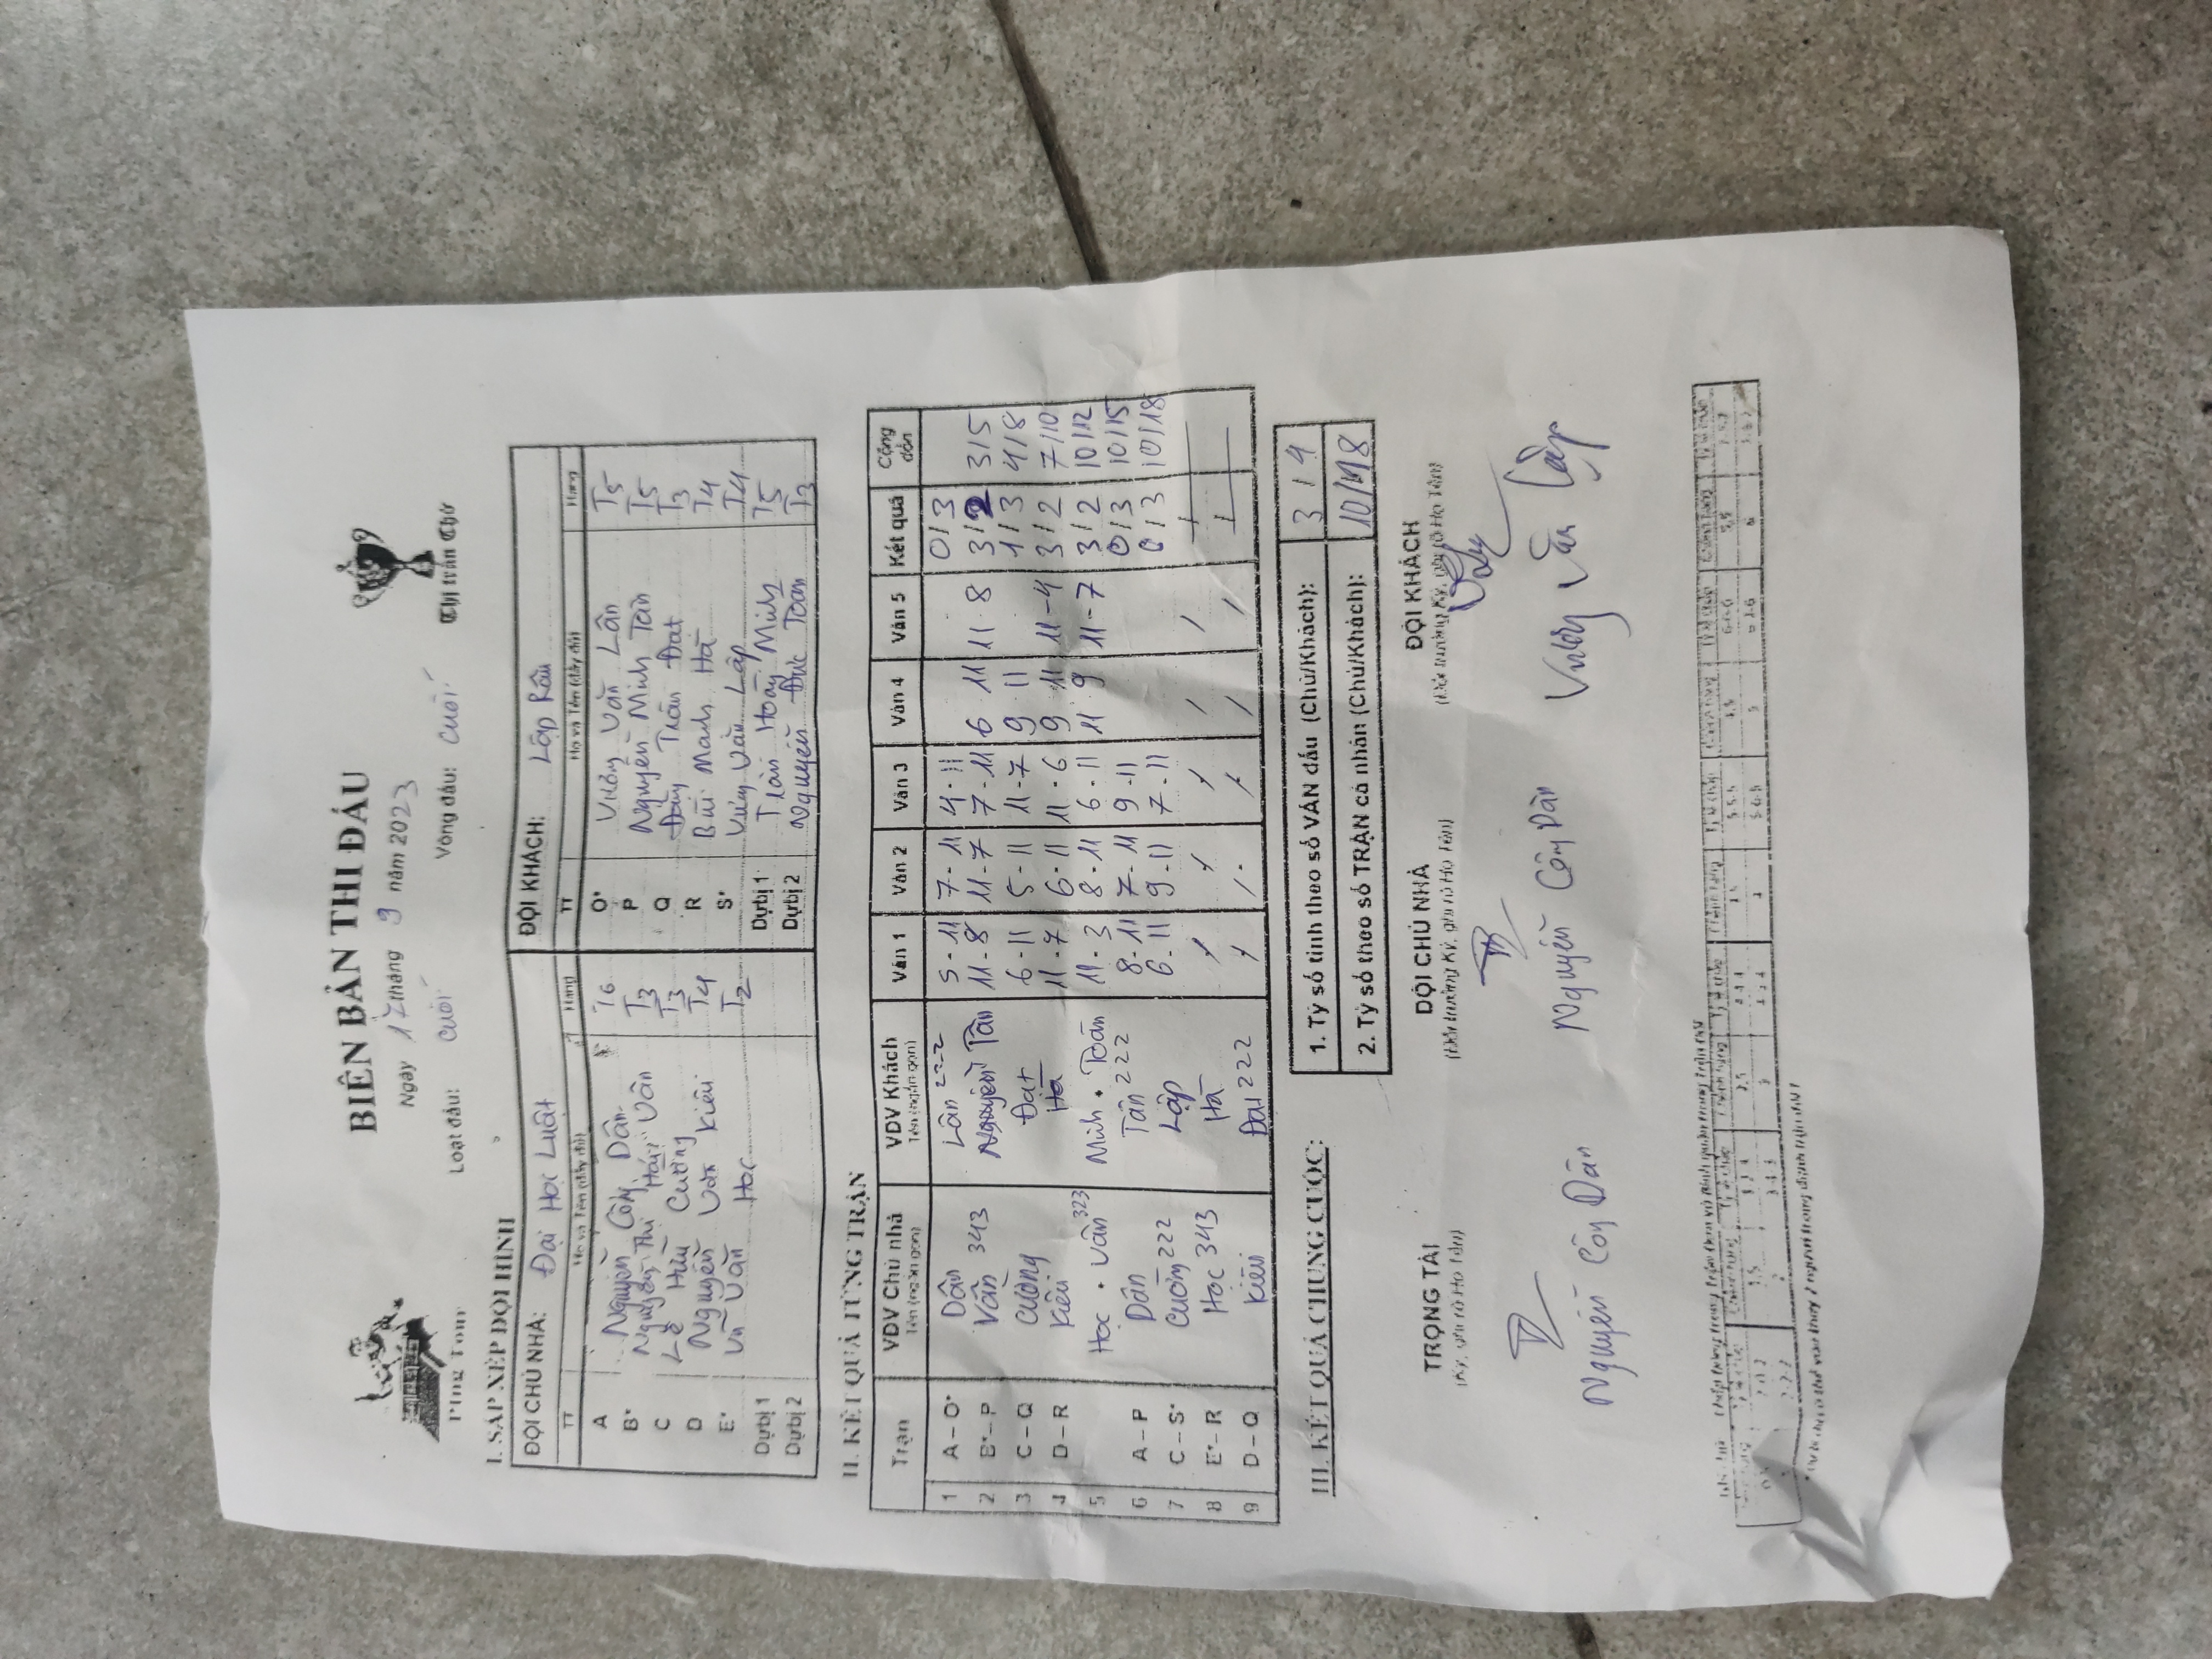 BIÊN BẢN THI ĐẤU
Ngày 17 tháng 9 năm 2023
Ping Tour
Loạt đấu: cuối Vòng đấu: cuối
I. SẮP XẾP ĐỘI HÌNH
ĐỘI CHỦ NHÀ: Đại Học Luật ĐỘI KHÁCH: Lập Râu
TT Họ và Tên (đầy đủ) Hạng TT Họ và Tên (đầy đủ) Hạng
A Nguyễn Công Dân T6 O* Vương Văn Lân T5
B* Nguyễn Thị Hải Vân T3 P Nguyễn Minh Tân T5
C Lê Hữu Cường T3 Q Đặng Trần Đạt T3
D Nguyễn Văn Kiên T4 R Bùi Mạnh Hà T4
E* Vũ Văn Học T2 S* Vương Văn Lập T4
Dự bị 1 Dự bị 1 Trần Hoàng Minh T5
Dự bị 2 Dự bị 2 Nguyễn Đức Toàn T3
II. KẾT QUẢ TỪNG TRẬN
Trận VĐV Chủ nhà VĐV Khách Ván 1 Ván 2 Ván 3 Ván 4 Ván 5 Kết quả Cộng dồn
Tên (ngắn gọn) Tên (ngắn gọn)
1 A – O* Dân Lân 222 5 - 11 7 - 11 4 - 11 0/3
2 B* – P Vân 343 Nguyễn Tân 11 - 8 11 - 7 7 - 11 6 11 11 8 3/2 3/5
3 C – Q Cường Đạt 6 - 11 5 - 11 11 - 7 9 11 1/3 4/8
4 D – R Kiên Hà 11 - 7 6 - 11 11 - 6 9 11 11 - 4 3/2 7/10
5 Học . Vân 323 Minh . Toàn 11 - 3 8 - 11 6 - 11 11 9 11 - 7 3/2 10/12
6 A – P Dân Tân 222 8 - 11 7 - 11 9 - 11 0/3 10/15
7 C – S* Cường 222 Lập 6 - 11 9 - 11 7 - 11 0/3 10/18
8 E* – R Học 343 Hà
9 D – Q Kiên Đạt 222
III. KẾT QUẢ CHUNG CUỘC:
1. Tỷ số tính theo số VÁN đấu (Chủ/Khách): 3 / 4
2. Tỷ số theo số TRẬN cá nhân (Chủ/Khách): 10/18
TRỌNG TÀI ĐỘI CHỦ NHÀ ĐỘI KHÁCH
(Ký, ghi rõ Họ Tên) (Đội trưởng Ký, ghi rõ Họ Tên) (Đội trưởng Ký, ghi rõ Họ Tên)
Nguyễn Công Dân Nguyễn Công Dân Vương Văn Lập